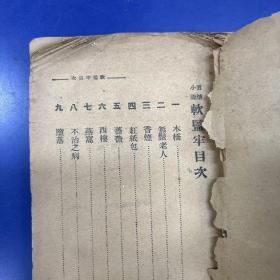 小說
軟監牢目次
一 木橋
二 老人
三 香煙
四 紅紙包
五 薔薇
六 西樓
七 燕窩
八 不治之病
九 墮落
軟監牢目次